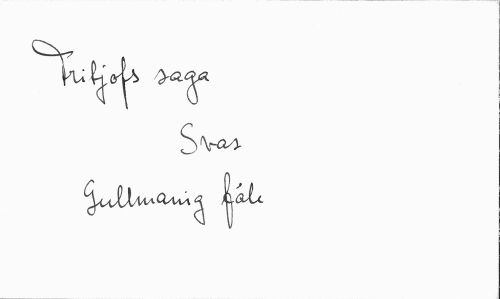 Fritjofs saga
Svas
Gullmanig fåle